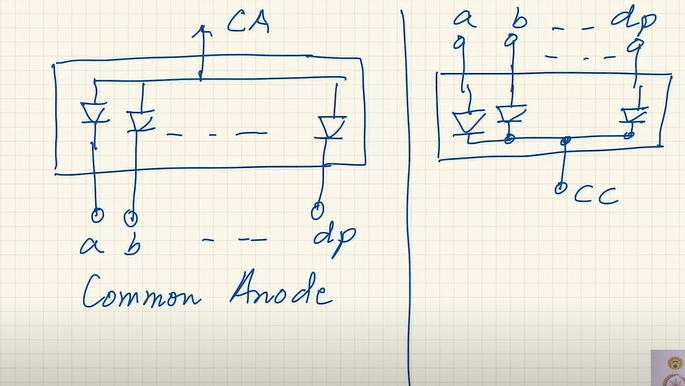 CA
a b -- dp
Common Anode
a b -- dp
CC